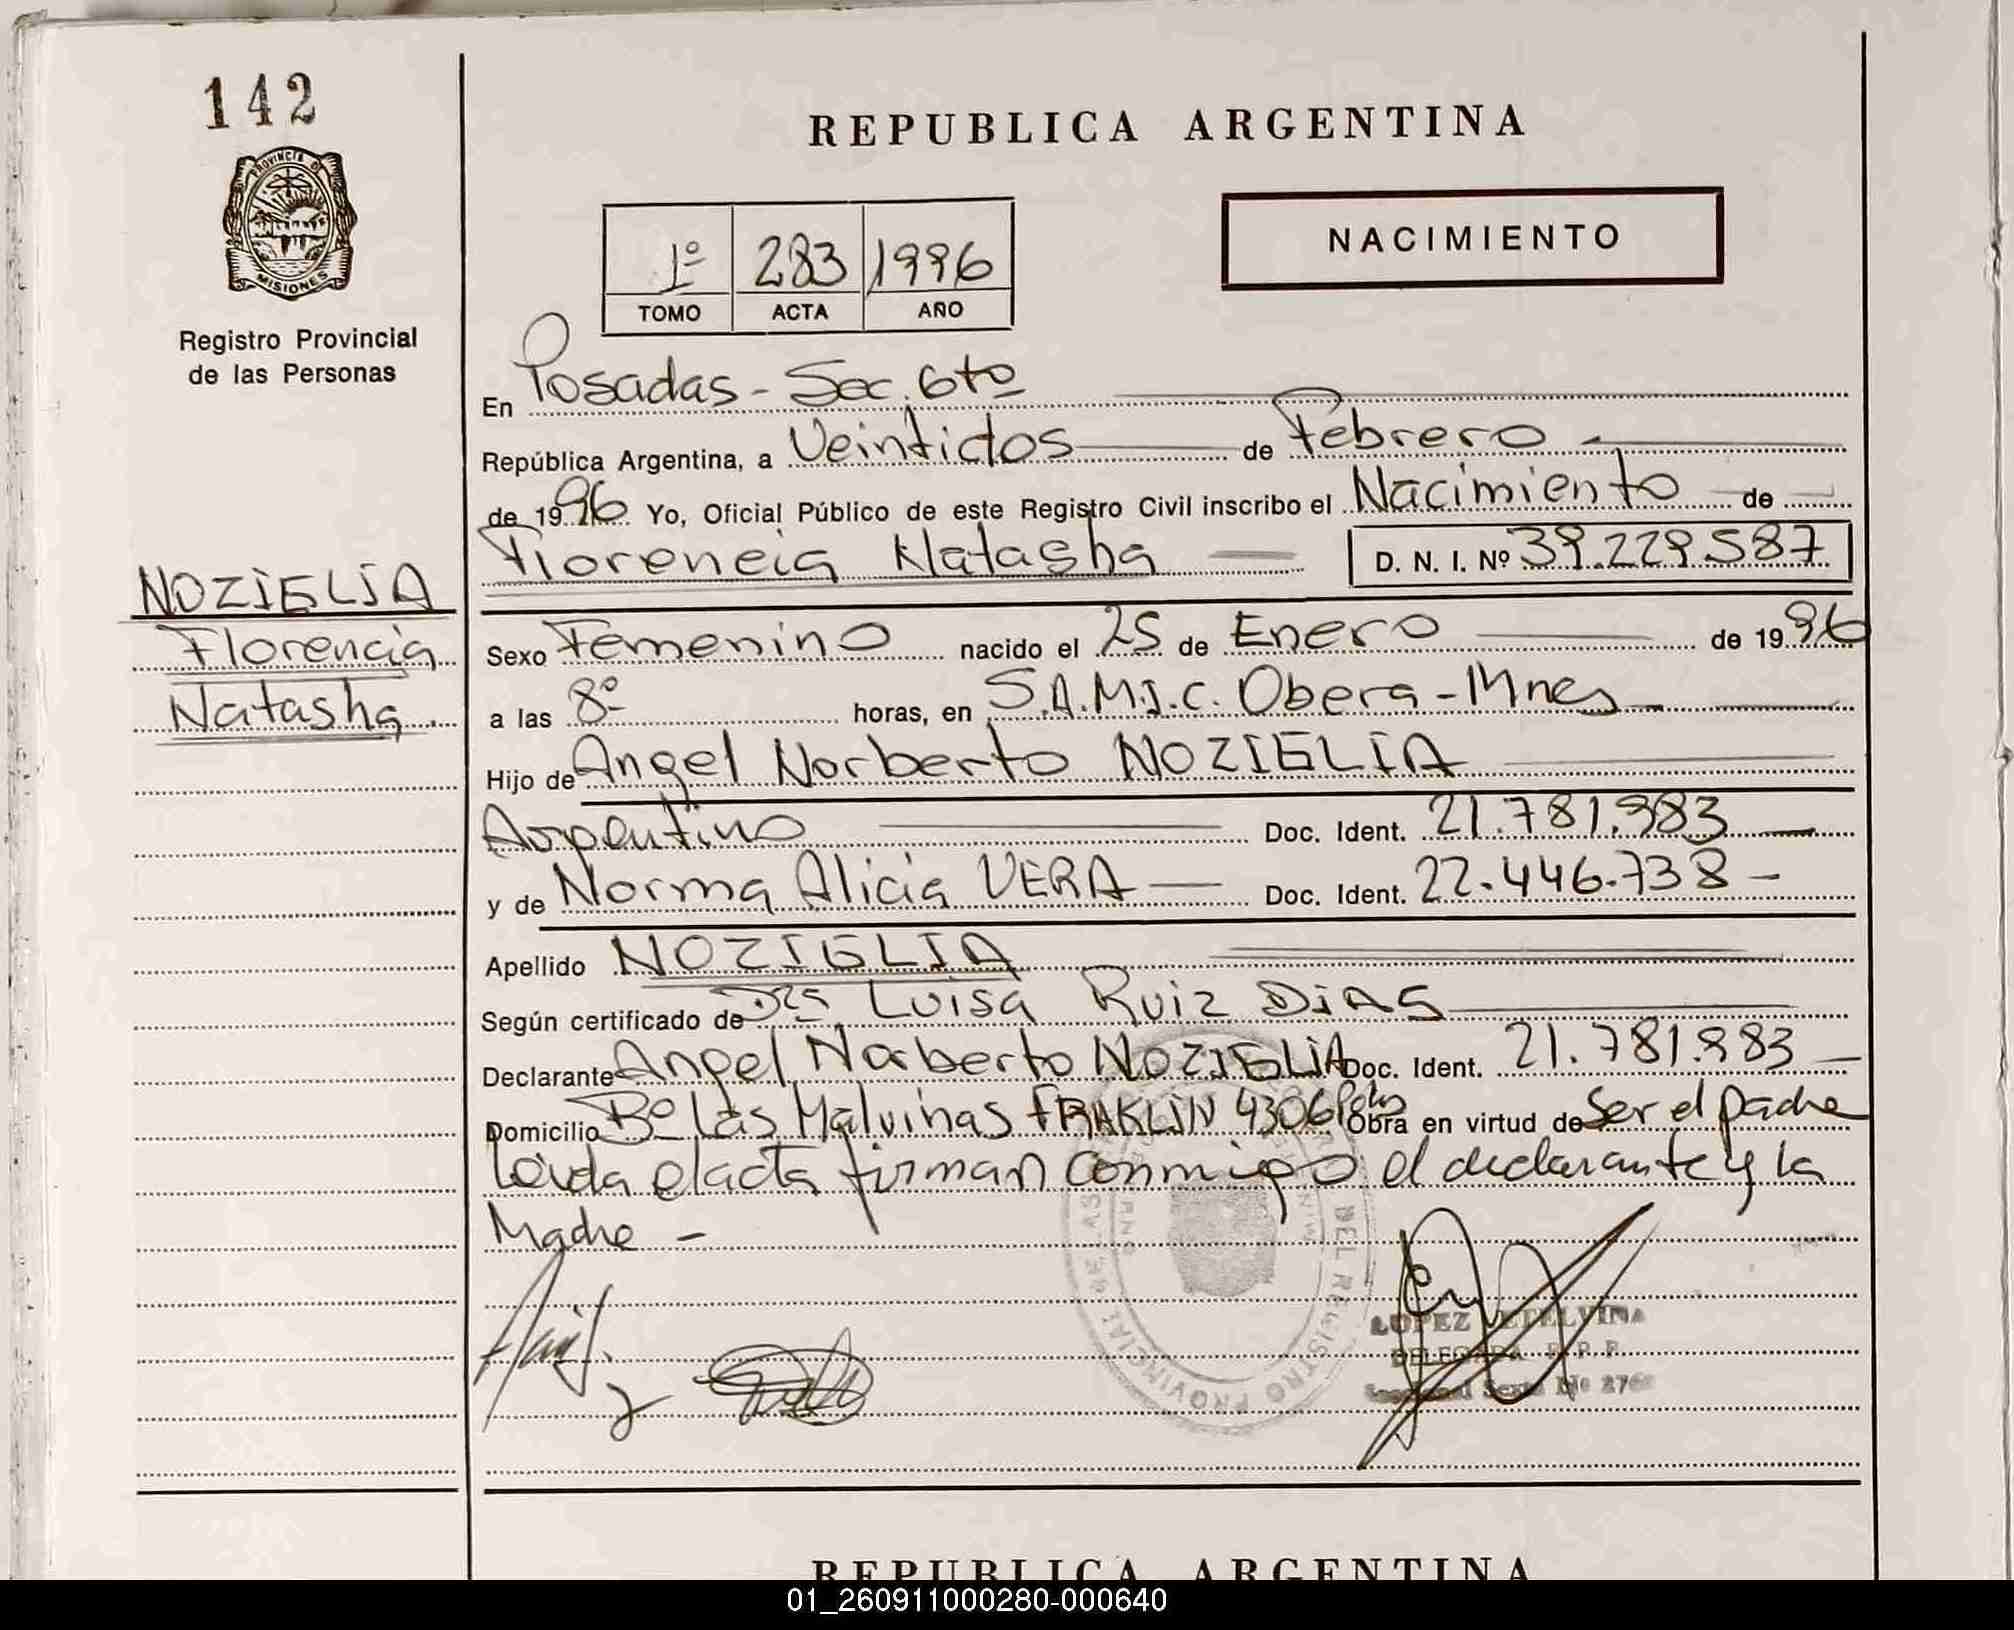 142
PROVINCIA D
MISIONES
Registro Provincial
de las Personas
NOZIGLIA
Florencia
Natasha.
REPUBLICA ARGENTINA
NACIMIENTO
1º 283 1996
TOMO ACTA AÑO
En Posadas - Sec. 6to
República Argentina, a Veintidos de Febrero -
de 1996 Yo, Oficial Público de este Registro Civil inscribo el Nacimiento de
Florencia Natasha D. N. I. Nº 39.229587
Sexo Femenino nacido el 25 de Enero de 1996
a las 8º horas, en S.A.M.I.C. Obera - Mnes
Hijo de Angel Norberto NOZIGLIA
Argentino Doc. Ident. 21.781.983
y de Norma Alicia VERA Doc. Ident. 22.446.738 -
Apellido NOZIGLIA
Según certificado de Dra Luisa Ruiz DiAS
Declarante Angel Norberto NOZIGLIA Doc. Ident. 21.781.983
Domicilio Bº Las Malvinas FRAKLIN 4306 Pdas Obra en virtud de Ser el padre
Leida el acta firman conmigo el declarante y la
Madre -
DEL REGISTRO PROVINCIAL DE LAS
LOPEZ ETELVINA
DELEGADA R. P. P.
Seccional Sexta Nº
REPUBLICA ARGENTINA
01_260911000280-000640